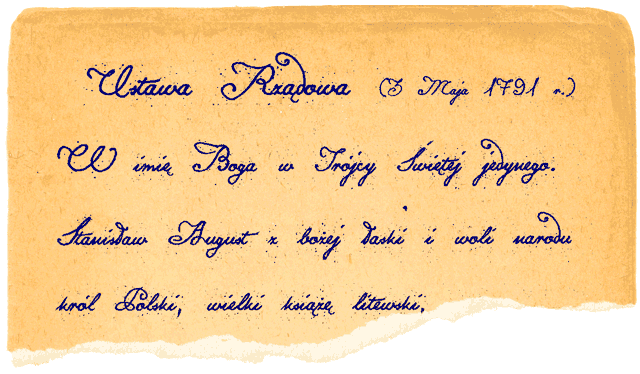 Ustawa Rządowa (3 Maja 1791 r.)
W imię Boga w Trójcy Świętej jedynego.
Stanisław August z bożej łaski i woli narodu
król Polski, wielki książę litewski,